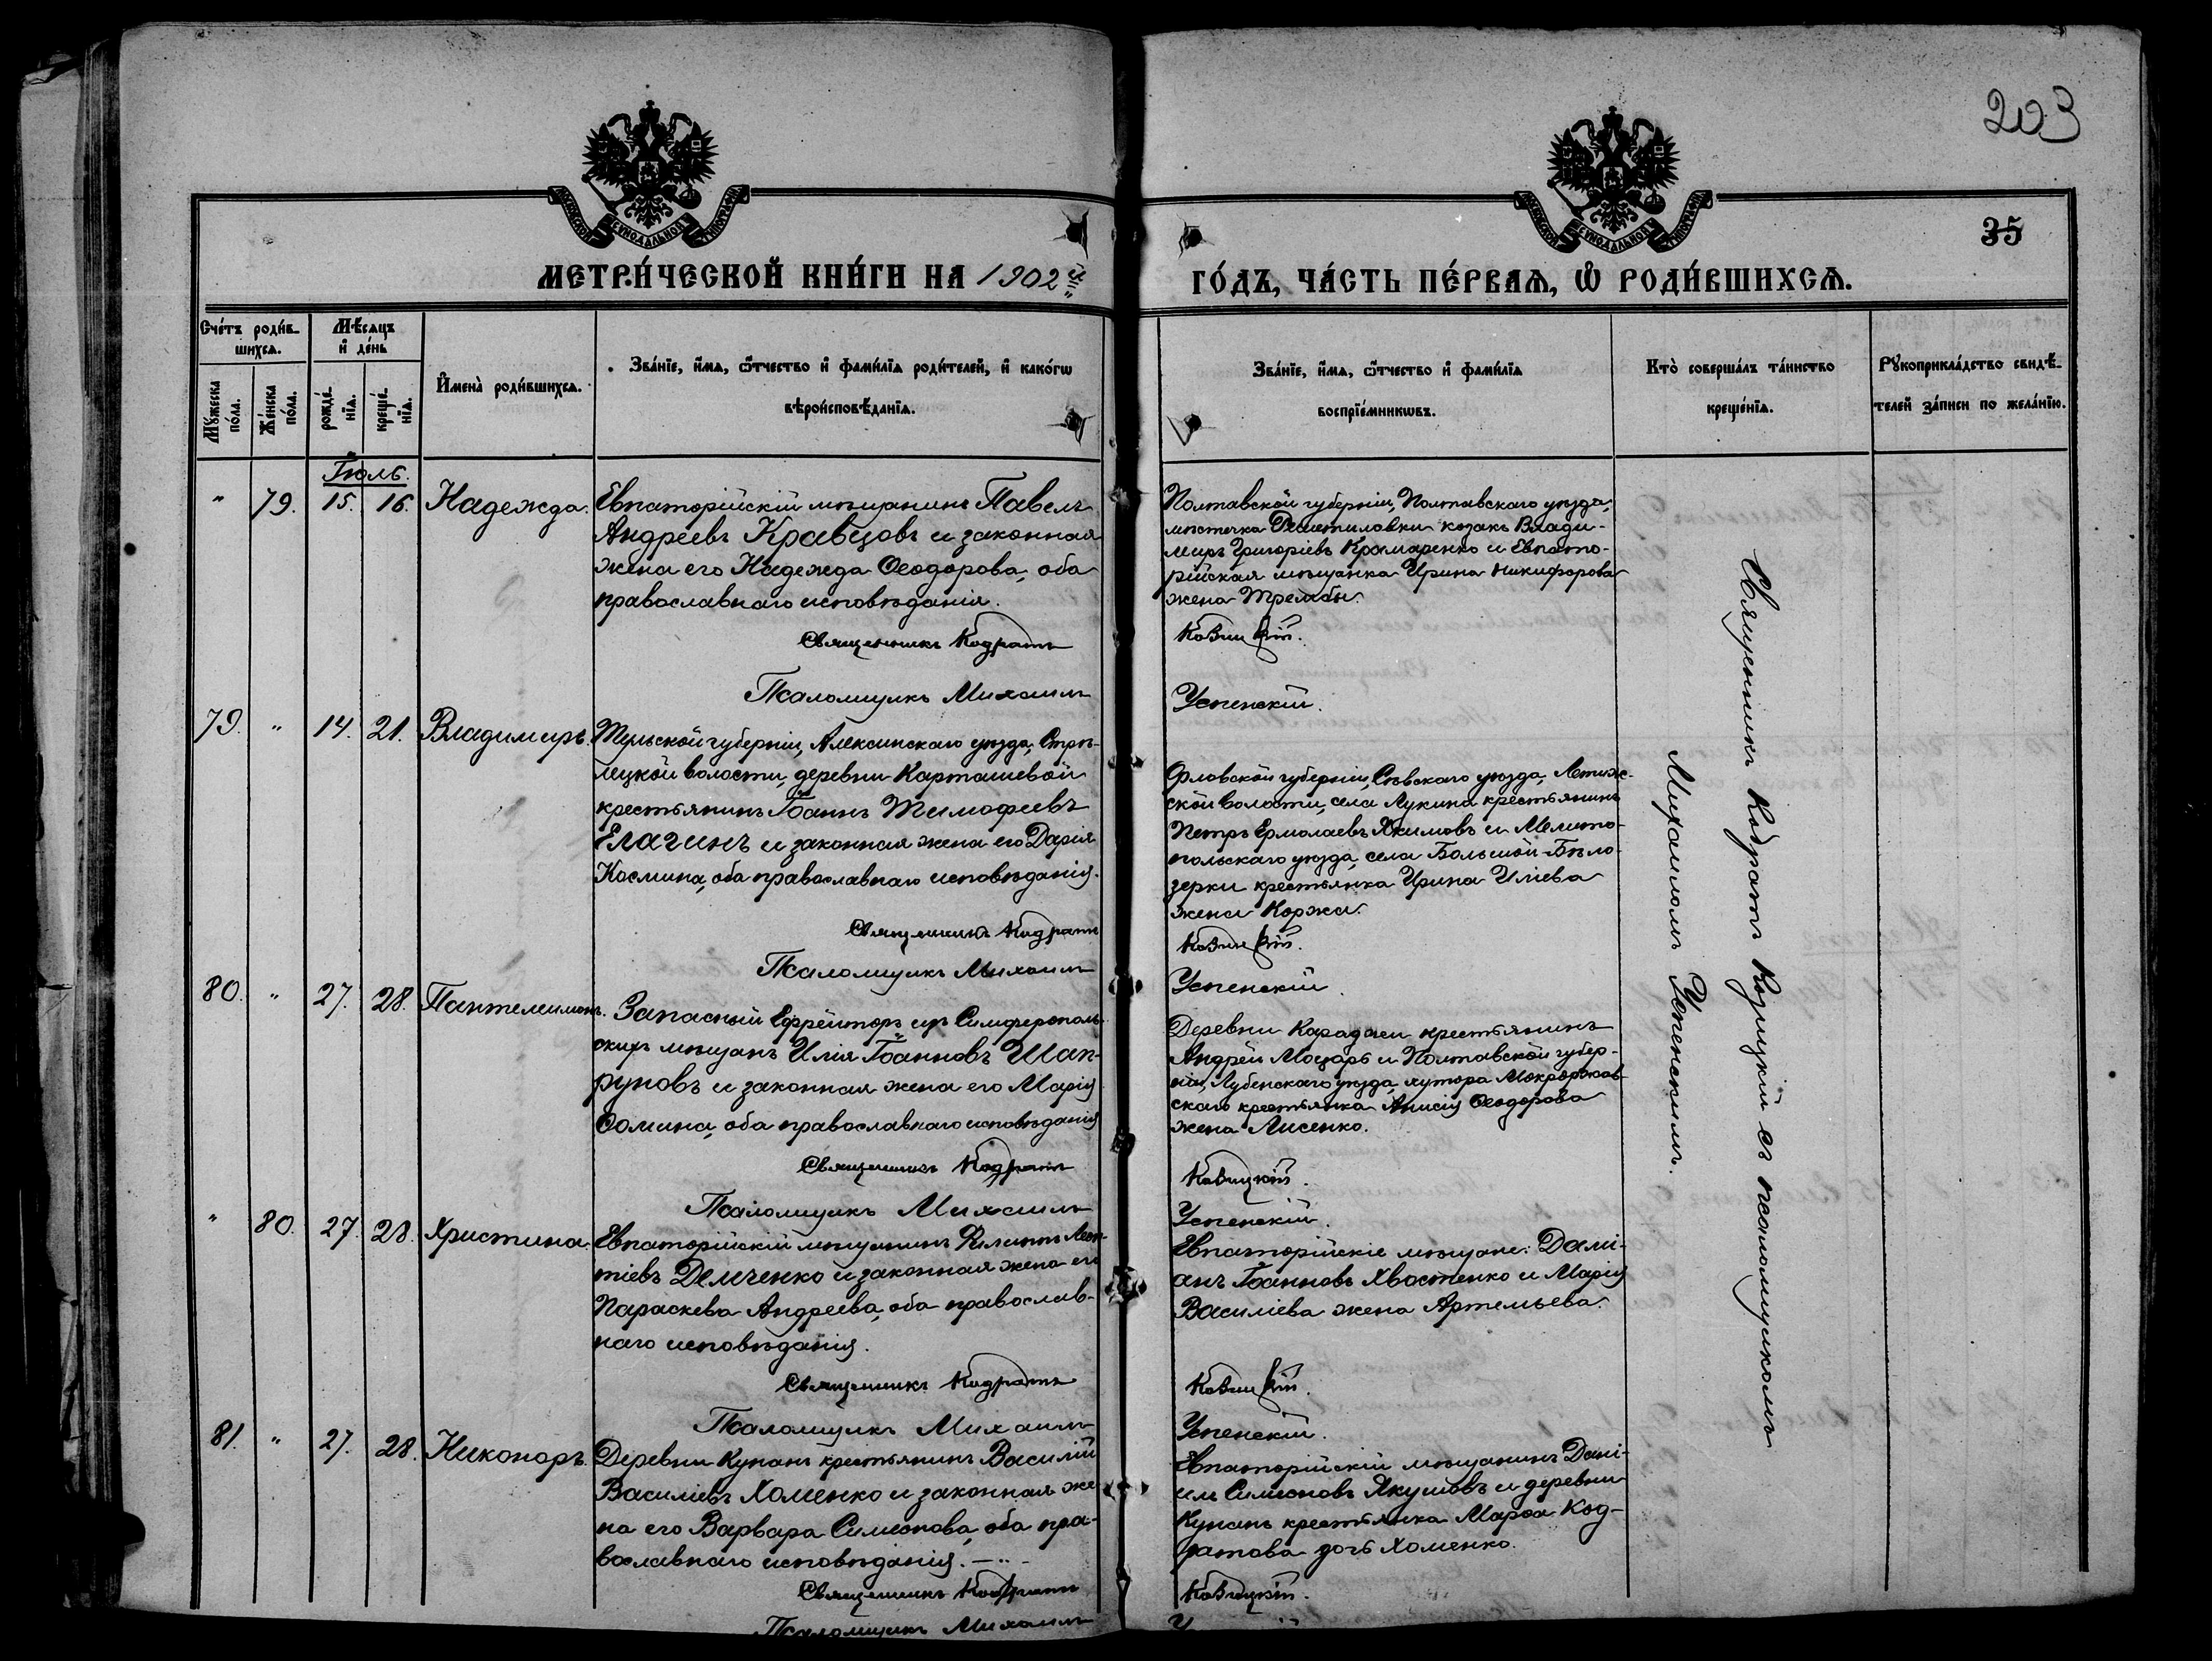 203
35
МОСКОВСКОЙ СѴНОДАЛЬНОЙ ТИПОГРАФІИ
МОСКОВСКОЙ СѴНОДАЛЬНОЙ ТИПОГРАФІИ
МЕТРИ́ЧЕСКОЙ КНИ́ГИ НА 1902й
ГО́ДЪ, ЧА́СТЬ ПЕ́РВАѦ, Ѡ҆ РОДИ́ВШИХСѦ.
Сче́тъ роди́в-
шихсѧ.
Мꙋ́жеска по́ла.
Же́нска по́ла.
Мѣ́сѧцъ
и҆ де́нь
рожде́-
нїѧ.
креще́-
нїѧ.
И҆мена̀ роди́вшихсѧ.
Зва́нїе, и҆́мѧ, ѻ҆́тчество и҆ фами́лїѧ роди́телей, и҆ како́гѡ
вѣроисповѣ́данїѧ.
Зва́нїе, и҆́мѧ, ѻ҆́тчество и҆ фами́лїѧ
воспрїе́мникѡвъ.
Кто̀ соверша́лъ та́инство
креще́нїѧ.
Рꙋкоприкла́дство свидѣ́-
телей за́писи по жела́нїю.
Іюль.
" 79. 15. 16. Надежда.
Евпаторійскій мѣщанинъ Павелъ
Андреевъ Кравцовъ и законная
жена его Надежда Ѳеодорова, оба
православнаго исповѣданія.
Священникъ Кодратъ
Псаломщикъ Михаилъ
Полтавской губерніи, Полтавскаго уѣзда,
мѣстечка козакъ Влади-
миръ Григоріевъ Крамаренко и Евпато-
рійская мѣщанка Ирина Никифорова
жена Трембы.
Козицкій.
Успенскій.
79. " 14. 21. Владимиръ.
Тульской губерніи, Алексинскаго уѣзда, Стрѣ-
лецкой волости, деревни Карташевой
крестьянинъ Іоаннъ Тимофеевъ
Елагинъ и законная жена его Дарія
Космина, оба православнаго исповѣданія.
Священникъ Кодратъ
Псаломщикъ Михаилъ
Орловской губерніи, Сѣвскаго уѣзда,
ской волости, села Лукина крестьянинъ
Петръ Ермолаевъ Якимовъ и Мелито-
польскаго уѣзда, села Большой-Бѣло-
зерки крестьянка Ирина Иліева
жена Коржа.
Козицкій.
Успенскій.
80. " 27. 28. Пантелеимонъ.
Запасный Ефрейторъ изъ Симферополь-
скихъ мѣщанъ Илія Іоанновъ Шап-
руновъ и законная жена его Марія
Ѳомина, оба православнаго исповѣданія
Священникъ Кодратъ
Псаломщикъ Михаилъ
Деревни крестьянинъ
Андрей Моцарь и Полтавской губер-
ніи, Лубенскаго уѣзда, хутора
скаго крестьянка Анисія Ѳеодорова
жена Лисенко.
Козицкій.
Успенскій.
" 80. 27. 28. Христина.
Евпаторійскій мѣщанинъ Филиппъ Леон-
тіевъ Демченко и законная жена его
Параскева Андреева, оба православ-
наго исповѣданія.
Священникъ Кодратъ
Псаломщикъ Михаилъ
Евпаторійскіе мѣщане: Дамі-
анъ Іоанновъ Хвостенко и Марія
Василіева жена Артемьева.
Козицкій.
Успенскій.
81. " 27. 28. Никоноръ.
Деревни Кунанъ крестьянинъ Василій
Василіевъ Хоменко и законная же-
на его Варвара Симеонова, оба пра-
вославнаго исповѣданія.
Священникъ Кодратъ
Псаломщикъ Михаилъ
Евпаторійскій мѣщанинъ Дані-
илъ Симеоновъ Якушовъ и деревни
Кунанъ крестьянка Марѳа Код-
ратова дочь Хоменко.
Козицкій.
Священникъ Кодратъ Козицкій съ псаломщикомъ
Михаиломъ Успенскимъ.